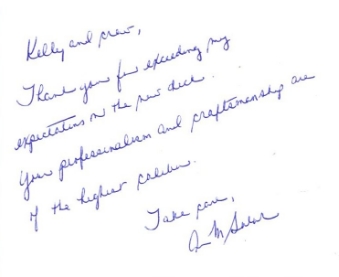 Kelly and crew,
Thank you for exceeding my
expectations on the new deck.
Your professionalism and craftsmanship are
of the highest caliber.
Take care,
M